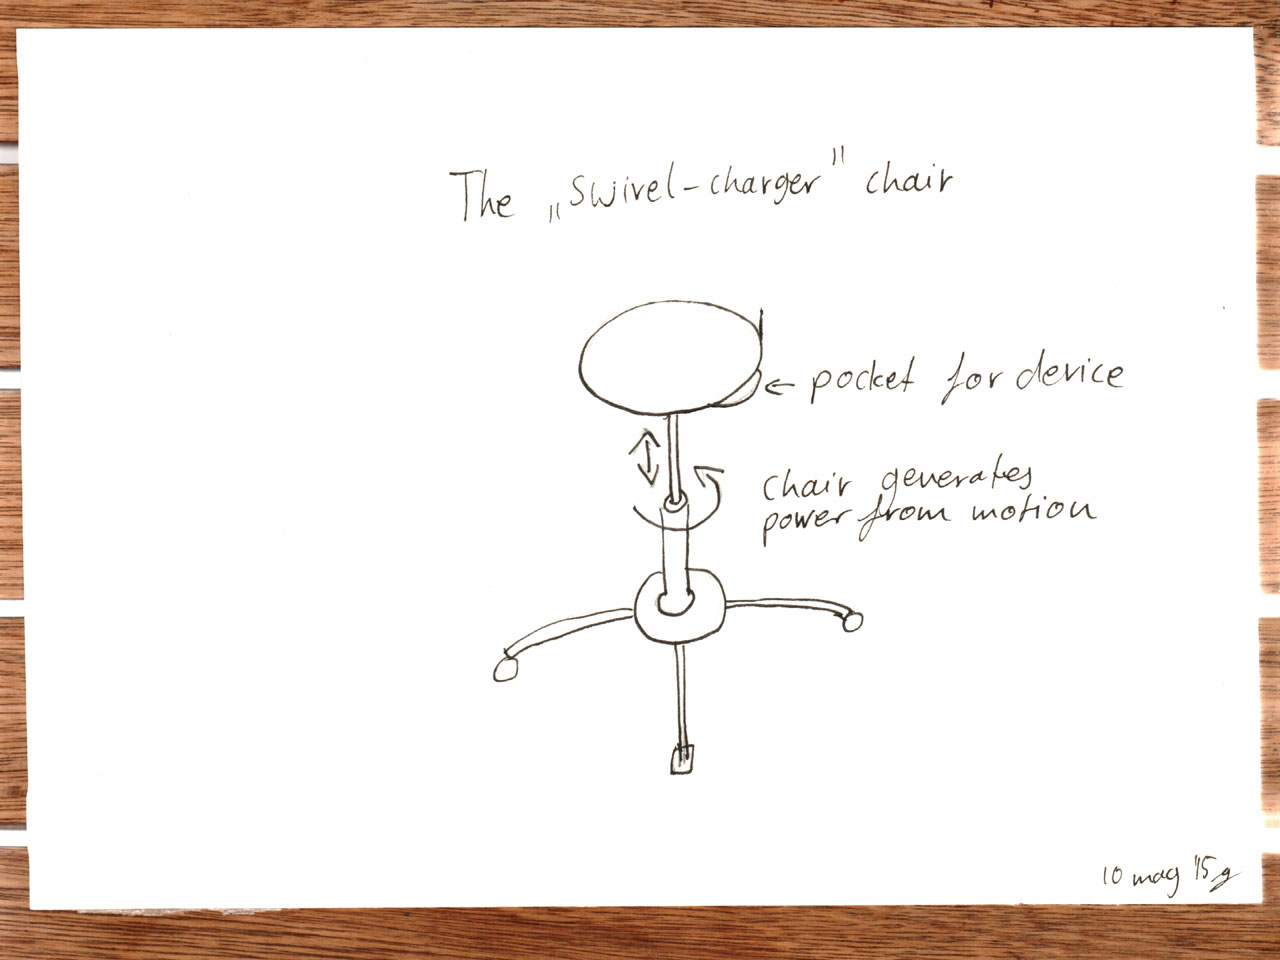 The „Swivel-charger" chair
pocket for device
chair generates
power from motion
10 mag '15